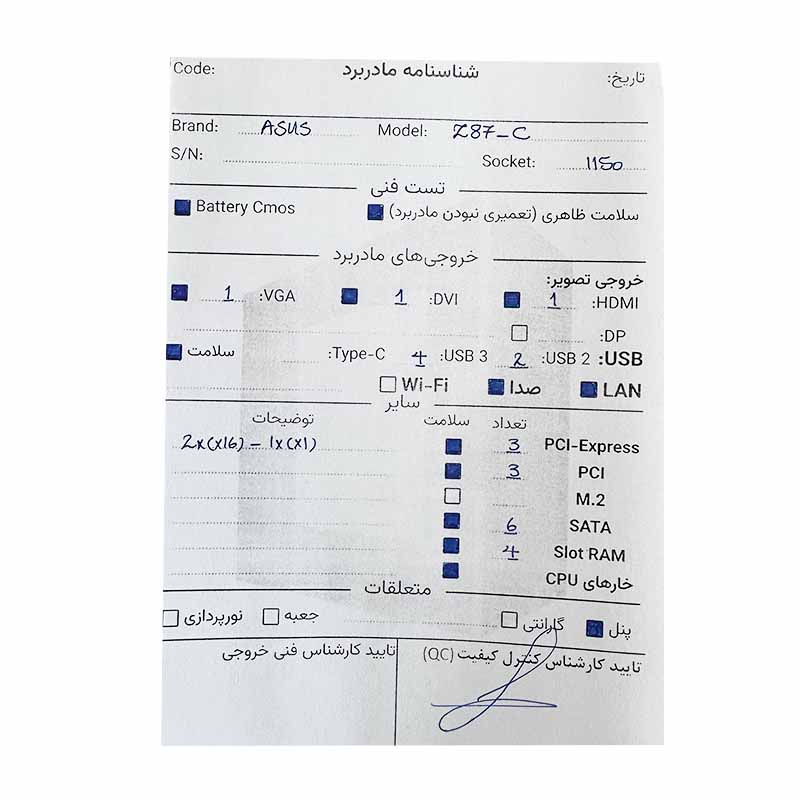 شناسنامه مادربرد
تاریخ: Code:
Brand: ASUS Model: Z87-C
S/N: Socket: 1150
تست فنی
سلامت ظاهری (تعمیری نبودن مادربرد) Battery Cmos
خروجی‌های مادربرد
خروجی تصویر:
HDMI: 1 DVI: 1 VGA: 1
DP:
USB: USB 2: 2 USB 3: 4 Type-C: سلامت
LAN صدا Wi-Fi
سایر
تعداد سلامت توضیحات
PCI-Express 3 2x(x16) - 1x(x1)
PCI 3
M.2
SATA 6
Slot RAM 4
خارهای CPU
متعلقات
پنل گارانتی جعبه نورپردازی
تایید کارشناس کنترل کیفیت (QC) تایید کارشناس فنی خروجی